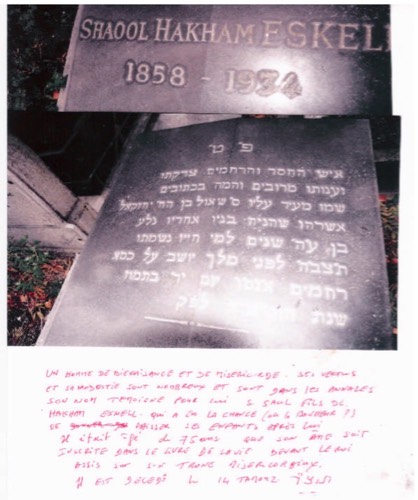 SHAOOL HAKHAM ESKELL
1858 - 1934
פ ט
איש החסד והרחמים צדקתו
וענותו מרובים והמה בכתובים
שמו מעיד עליו ס׳ שאול בן הח׳ יחזקאל
אשרהו שהניח בניו אחריו
בן עה שנים לפני חייו נשמתו
לפני מלך יושב על כסא
רחמים יום יד בתמוז
שנת
UN HOMME DE BIENFAISANCE ET DE MISERICORDE. SES VERTUS
ET SA MODESTIE SONT NOMBREUX ET SONT DANS LES ANNALES
SON NOM TEMOIGNE POUR LUI S SAUL FILS DE
HAKHAM ESKELL. QUI A EU LA CHANCE (OU LE BONHEUR ?)
DE LAISSER SES ENFANTS APRÈS LUI
Il était âgé de 75 ans que SON ÂME SOIT
INSCRITE DANS LE LIVRE DE LA VIE DEVANT LE ROI
ASSIS SUR SON TRONE MISERICORDIEUX.
Il EST DECEDÉ LE 14 TAMOUZ